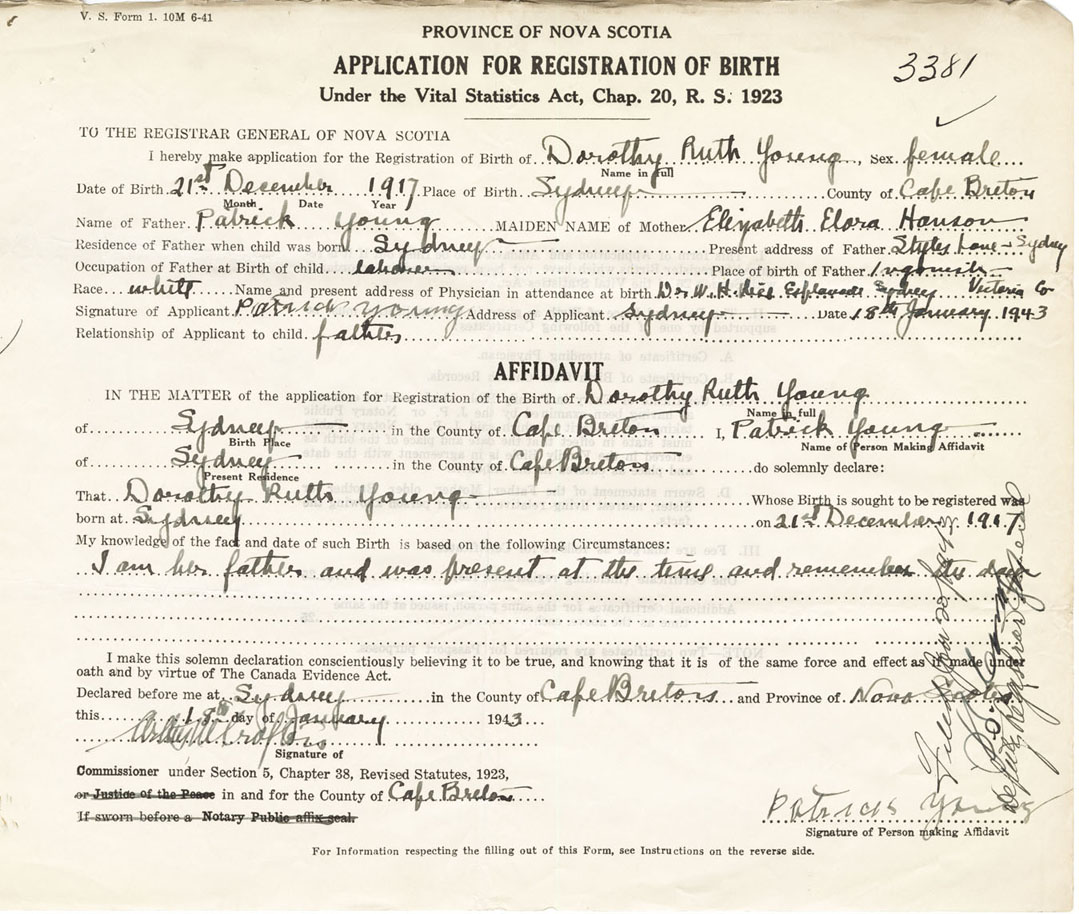 V. S. Form 1. 10M 6-41
PROVINCE OF NOVA SCOTIA
3381
APPLICATION FOR REGISTRATION OF BIRTH
Under the Vital Statistics Act, Chap. 20, R. S. 1923
TO THE REGISTRAR GENERAL OF NOVA SCOTIA
I hereby make application for the Registration of Birth of Dorothy Ruth Young, Sex female
Name in full
Date of Birth 21st December 1917 Place of Birth Sydney County of Cape Breton
Month Date Year
Name of Father Patrick Young MAIDEN NAME of Mother Elizabeth Elora Hanson
Residence of Father when child was born Sydney Present address of Father Styles Lane - Sydney
Occupation of Father at Birth of child laborer Place of birth of Father
Race white Name and present address of Physician in attendance at birth Dr W. H. Rice Esplanade Sydney Victoria Co
Signature of Applicant Patrick Young Address of Applicant Sydney Date 18th January 1943
Relationship of Applicant to child father
AFFIDAVIT
IN THE MATTER of the application for Registration of the Birth of Dorothy Ruth Young
Name in full
of Sydney in the County of Cape Breton I, Patrick Young
Birth Place Name of Person Making Affidavit
of Sydney in the County of Cape Breton do solemnly declare:
Present Residence
That Dorothy Ruth Young Whose Birth is sought to be registered was
born at Sydney on 21st December 1917
My knowledge of the fact and date of such Birth is based on the following Circumstances:
I am her father and was present at the time and remember the day
I make this solemn declaration conscientiously believing it to be true, and knowing that it is of the same force and effect as if made under
oath and by virtue of The Canada Evidence Act.
Declared before me at Sydney in the County of Cape Breton and Province of Nova Scotia
this 18th day of January 1943
Signature of
Commissioner under Section 5, Chapter 38, Revised Statutes, 1923,
or Justice of the Peace in and for the County of Cape Breton
If sworn before a Notary Public affix seal.
Patrick Young
Signature of Person making Affidavit
Deputy Registrar General
For Information respecting the filling out of this Form, see Instructions on the reverse side.